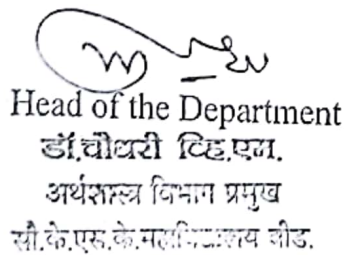 Head of the Department
डॉ.चौधरी व्हि.एम.
अर्थशास्त्र विभाग प्रमुख
सौ.के.एस.के.महाविद्यालय बीड.